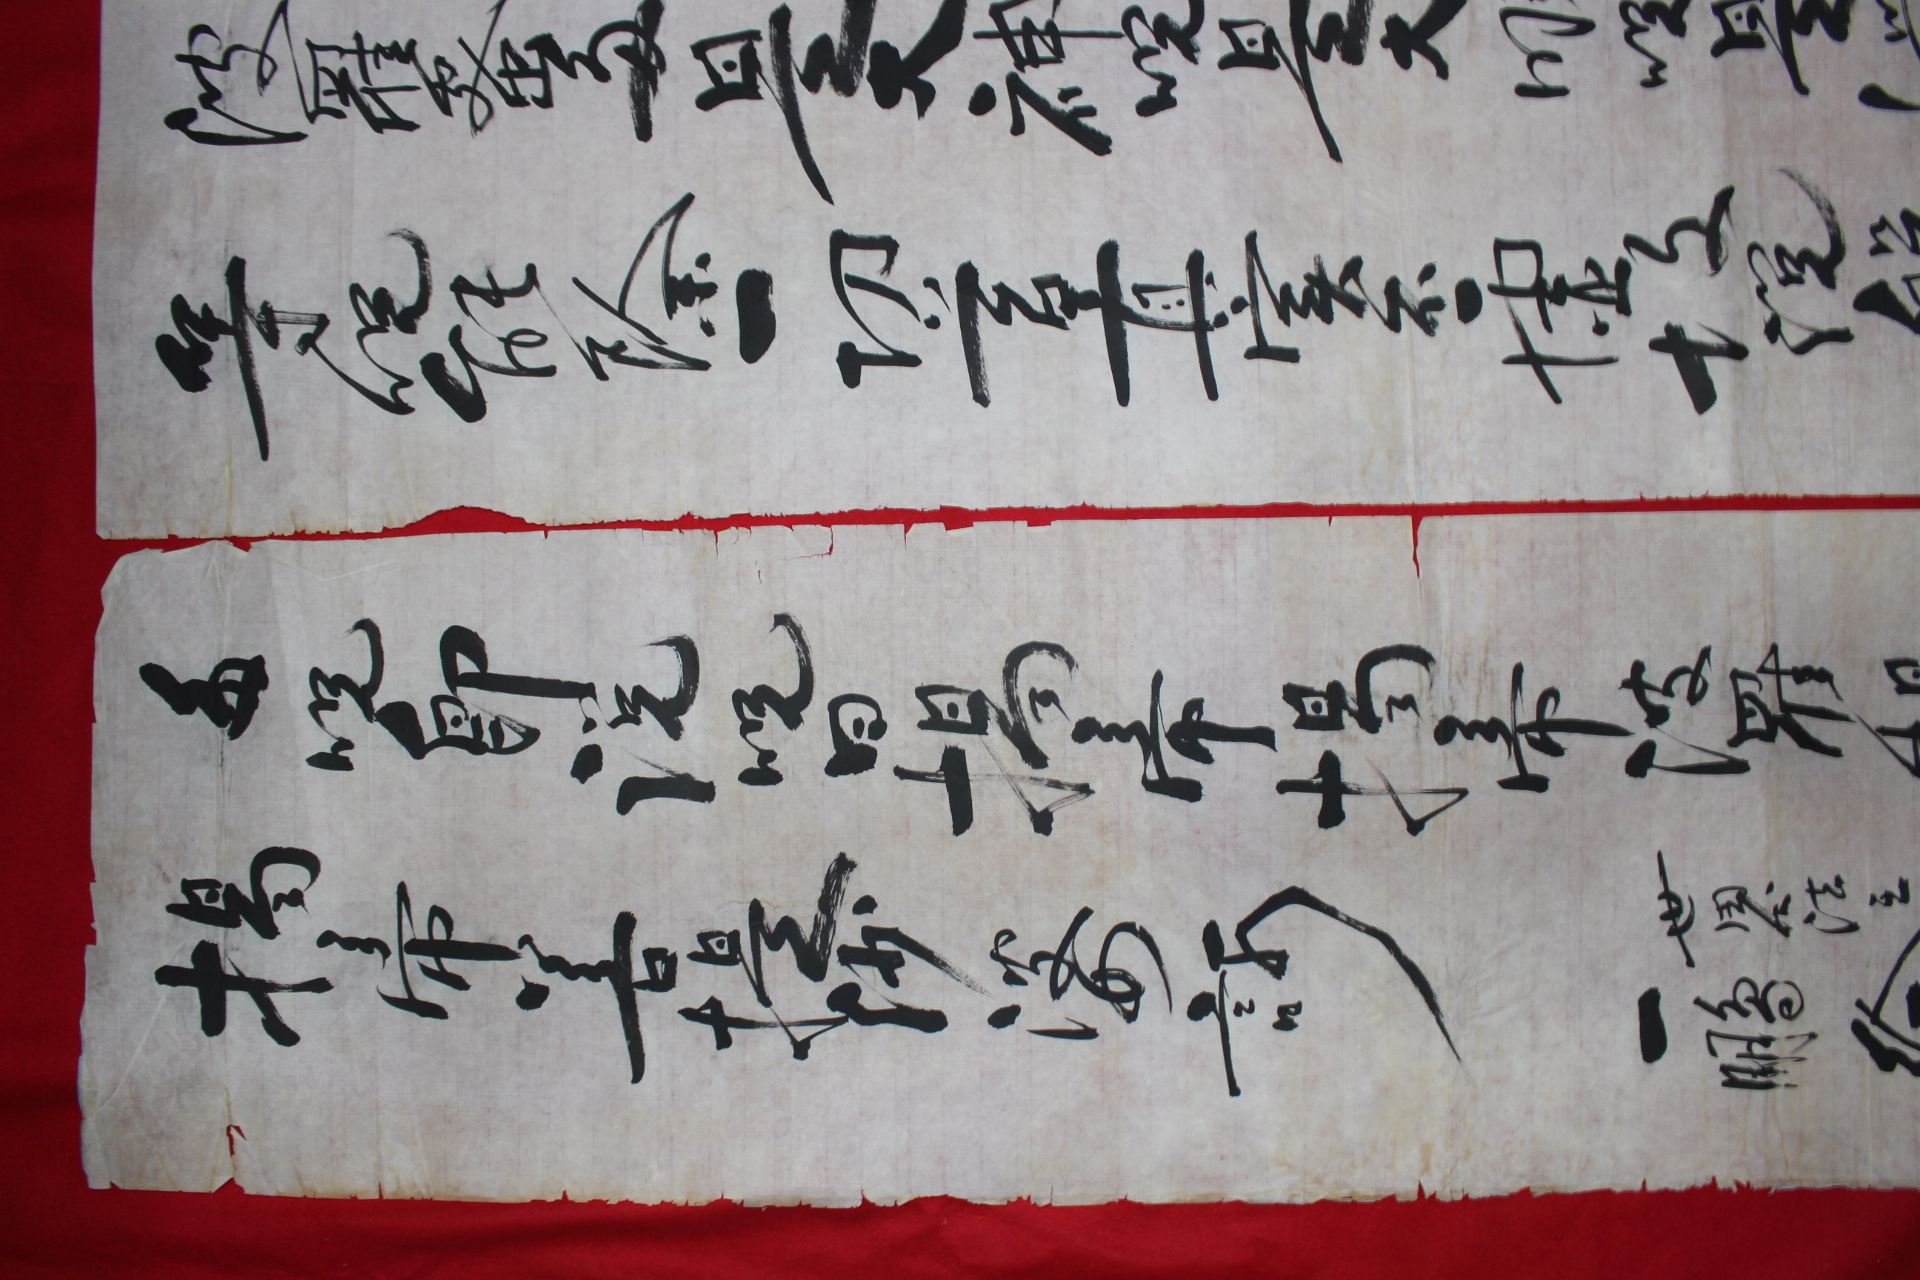 波羅蜜多是大神咒是大明咒是
等咒能除一切苦真實不虛故說般
多咒卽說咒曰揭帝揭帝波羅揭
揭帝菩提沙婆訶
世界法王
一鵬